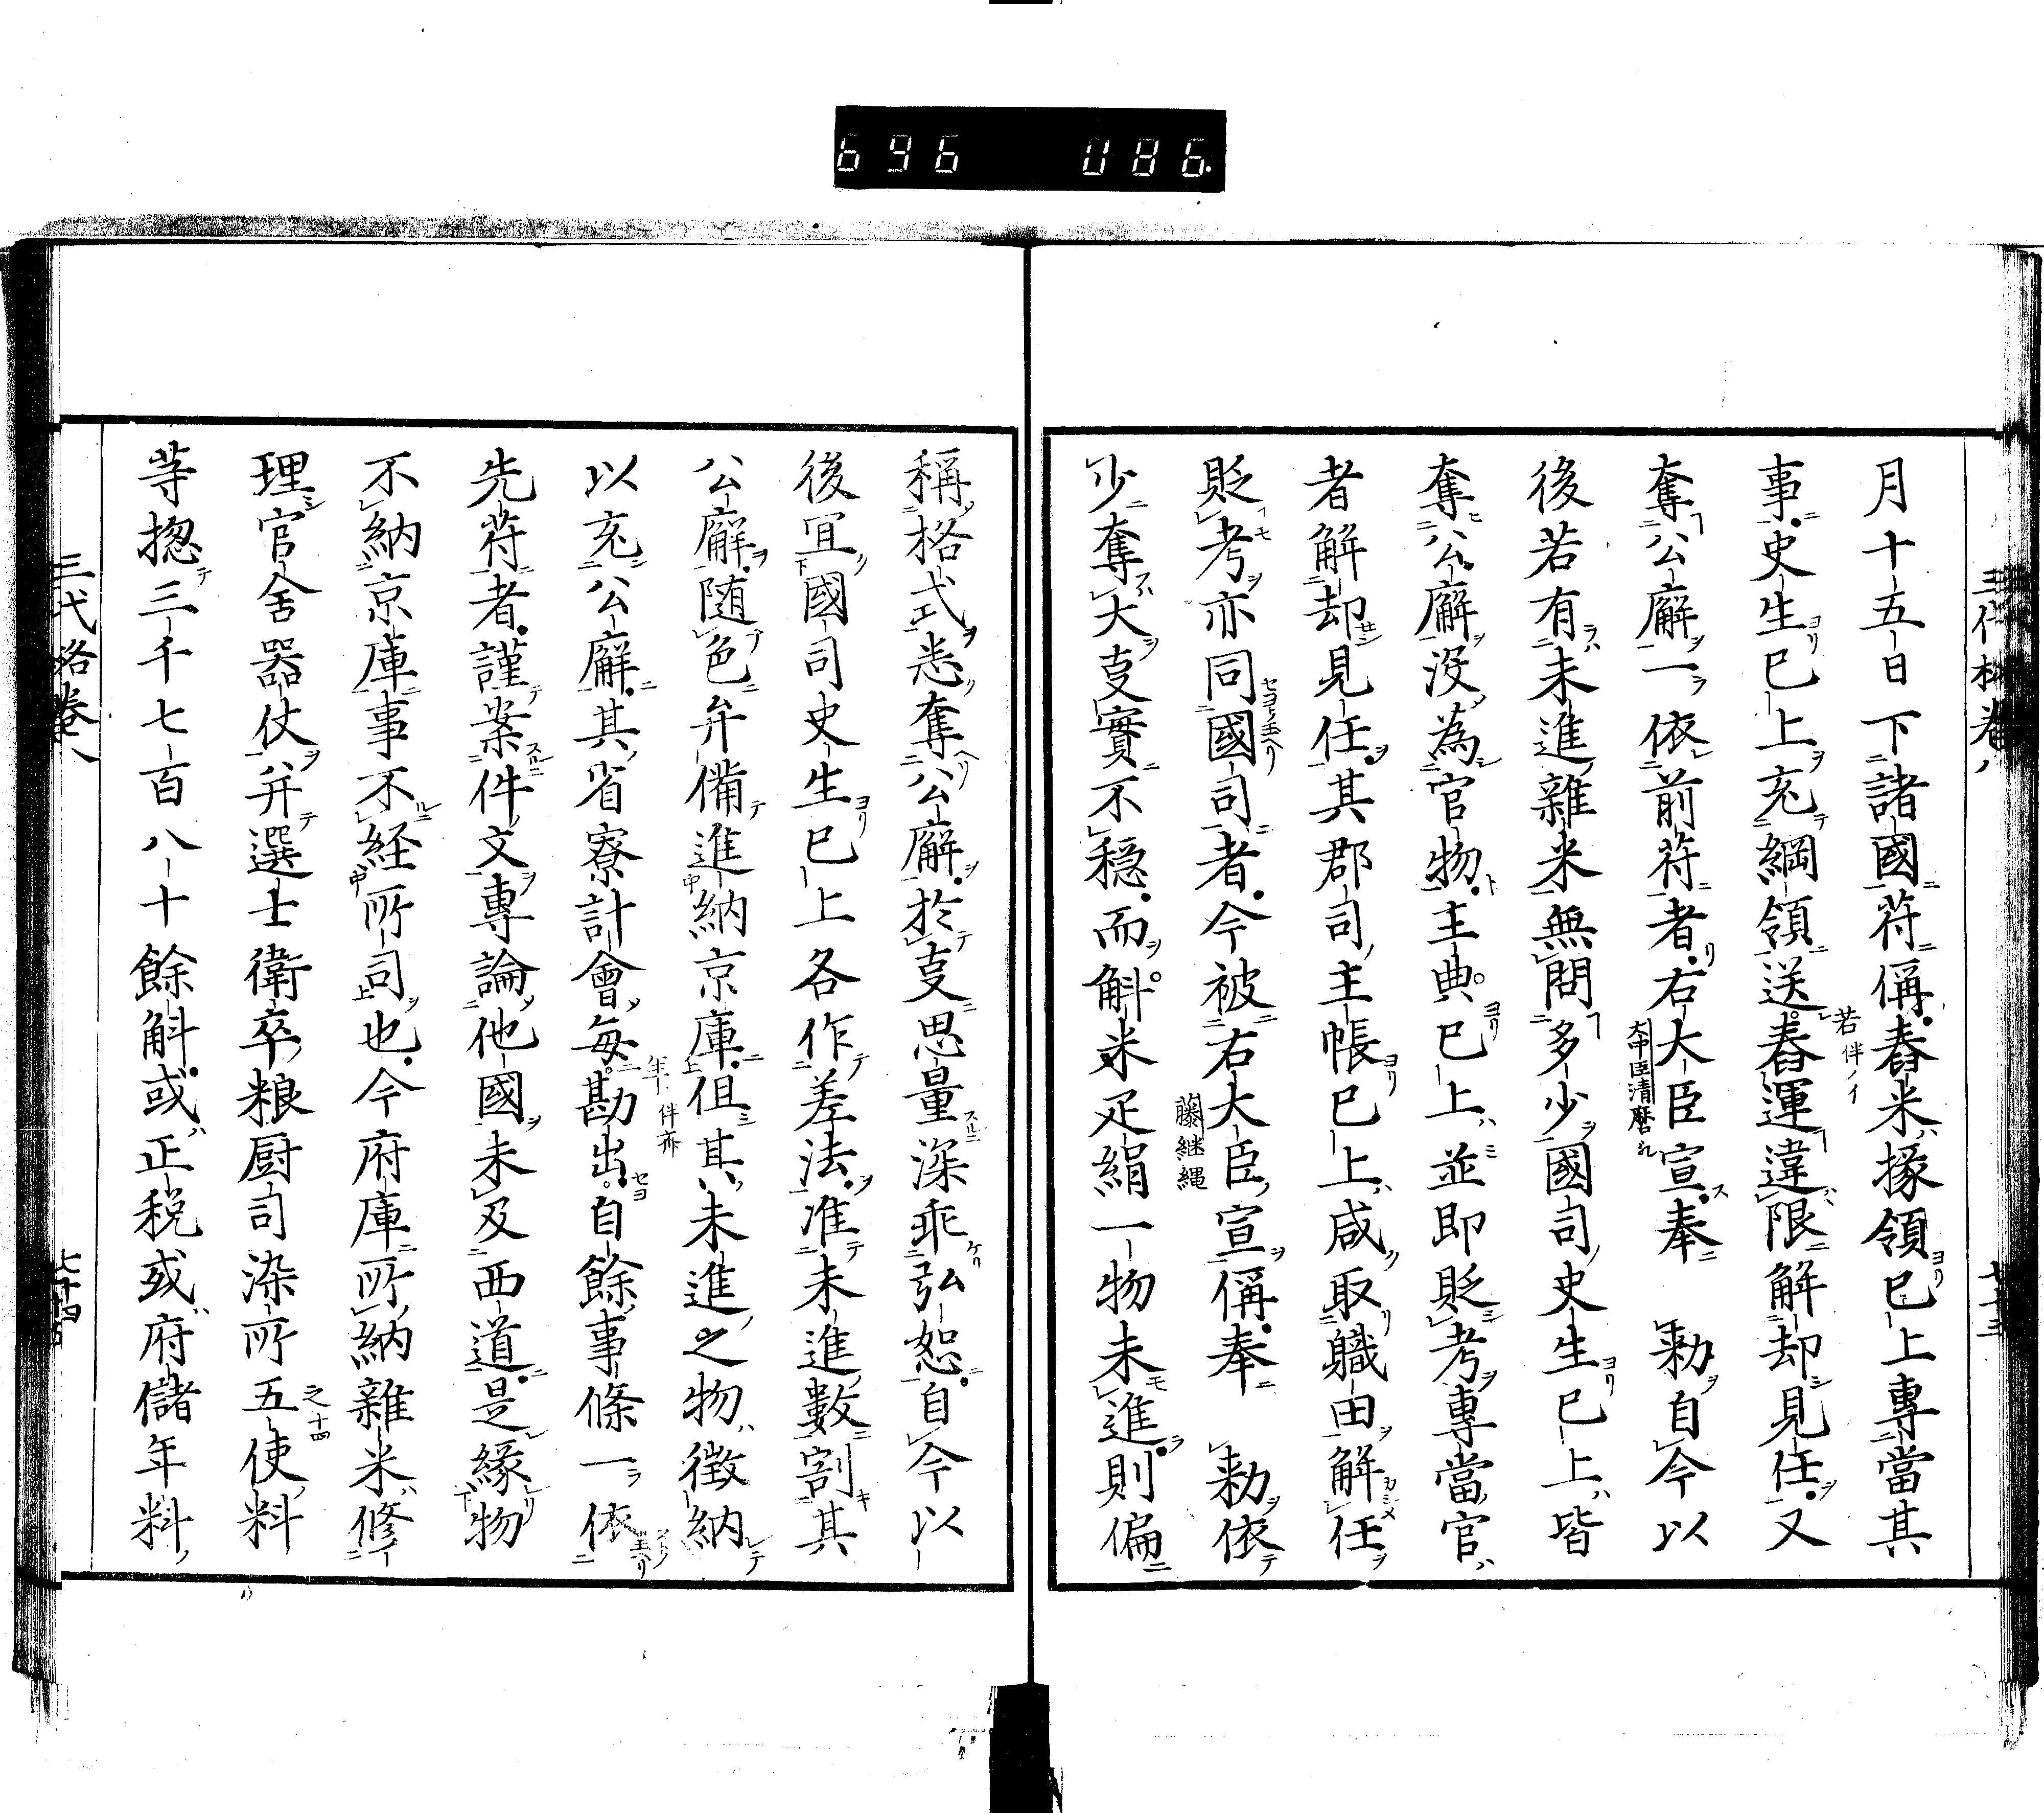 696 086.
三代格卷八 七十三
月十五日下諸國符偁舂米掾領已上專當其
事史生已上充綱領送舂運違限解却見任又
奪公廨一依前符者右大臣宣奉 勅自今以
後若有未進雜米無問多少國司史生已上皆
奪公廨没為官物主典已上並即貶考專當官
者解却見任其郡司主帳已上咸取職田解任
貶考亦同國司者今被右大臣宣偁奉 勅依
少奪大叓實不穏而斛米疋絹一物未進則偏
稱格式悉奪公廨於叓思量深乖弘恕自今以
後冝國司史生已上各作差法准未進數割其
公廨随色弁備進納京庫但其未進之物徴納
以充公廨其省寮計會每勘出自餘事條一依
先符者謹案件文專論他國未及西道是縁物
不納京庫事不経所司也今府庫所納雜米修
理官舎器仗并選士衛卒粮厨司染所五使料
等惣三千七百八十餘斛或正税或府儲年料
三代格卷八 七十四
若伴ノイ
大中臣清麿
藤継縄